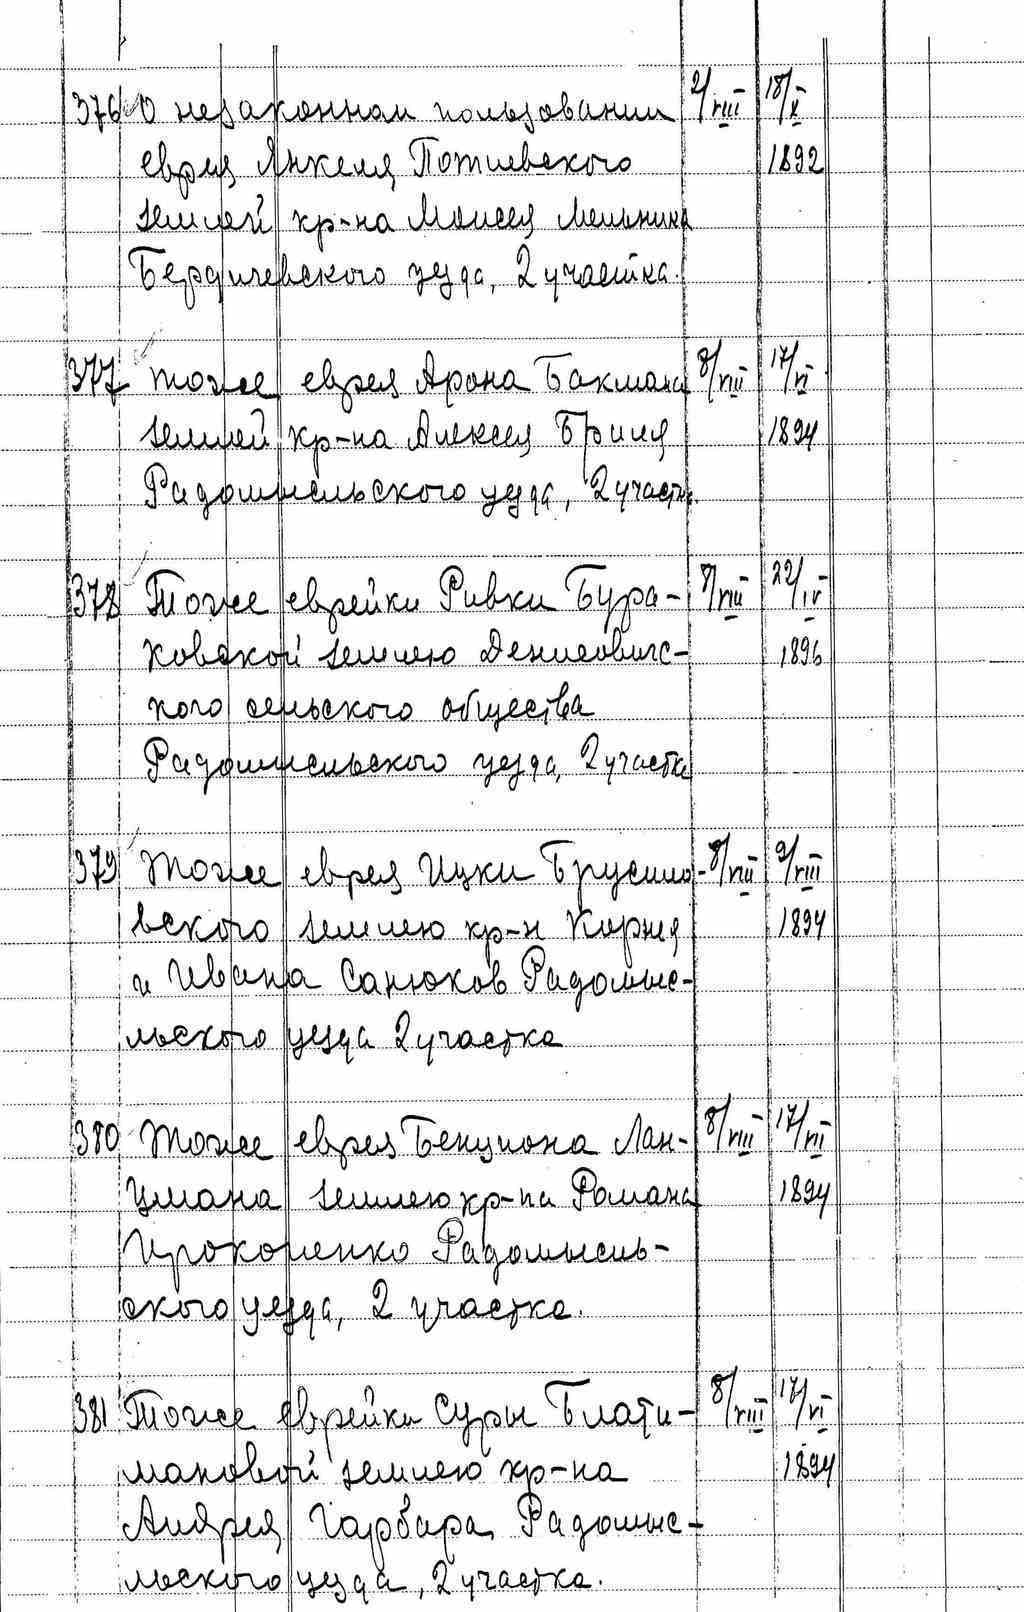 376 О незаконном пользовании 2/VIII 18/X
еврея Янкеля Потиевского 1892
землей кр-на Моисея Мельника
Бердичевского уезда, 2 участка.
377 тоже еврея Арона Бакмана 8/VIII 17/VI
землей кр-на Алексея Бриля 1894
Радомысльского уезда, 2 участк
378 Тоже еврейки Ривки Бура- 8/VIII 22/IV
ковской землею Денисовичс- 1896
кого сельского общества
Радомысльского уезда, 2 участка
379 Тоже еврея Ицки Брусило- 8/VIII 9/VIII
вского землею кр-н Корнея 1894
и Ивана Санюков Радомыс-
льского уезда 2 участка
380 Тоже еврея Бенциона Лан- 8/VIII 17/VII
цмана землею кр-на Романа 1894
Прокопенко Радомысль-
ского уезда, 2 участка.
381 Тоже еврейки Суры Блати- 8/VIII 17/VI
мановой землею кр-на 1894
Андрея Гарбара, Радомыс-
льского уезда, 2 участка.